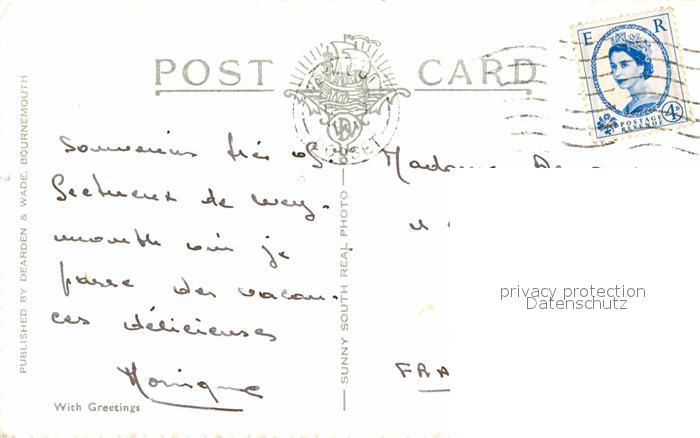 POST CARD
E R
POSTAGE REVENUE 4D
DORSET
PUBLISHED BY DEARDEN & WADE, BOURNEMOUTH
Souvenirs très af-
fectueux de Wey-
mouth où je
passe des vacan-
ces délicieuses
Monique
With Greetings
SUNNY SOUTH REAL PHOTO
Madame
FRA
privacy protection
Datenschutz